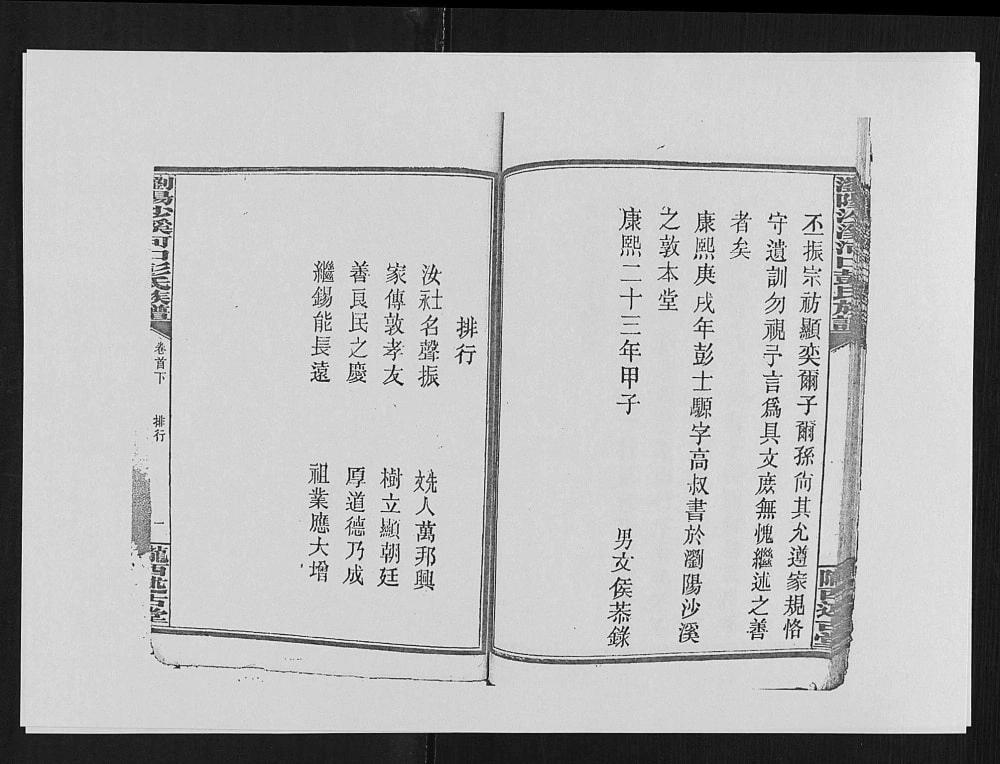 瀏陽沙溪河口彭氏族譜
隴西述古堂
丕振宗祊顯奕爾子爾孫尙其允遵家規恪
守遺訓勿視予言爲具文庶無愧繼述之善
者矣
康熙庚戌年彭士騵字高叔書於瀏陽沙溪
之敦本堂
康熙二十三年甲子 男文侯恭錄
排行
汝社名聲振 人萬邦興
家傳敦孝友 樹立顯朝廷
善良民之慶 厚道德乃成
繼錫能長遠 祖業應大增
瀏陽沙溪河口彭氏族譜
卷首下
排行
一
隴西述古堂